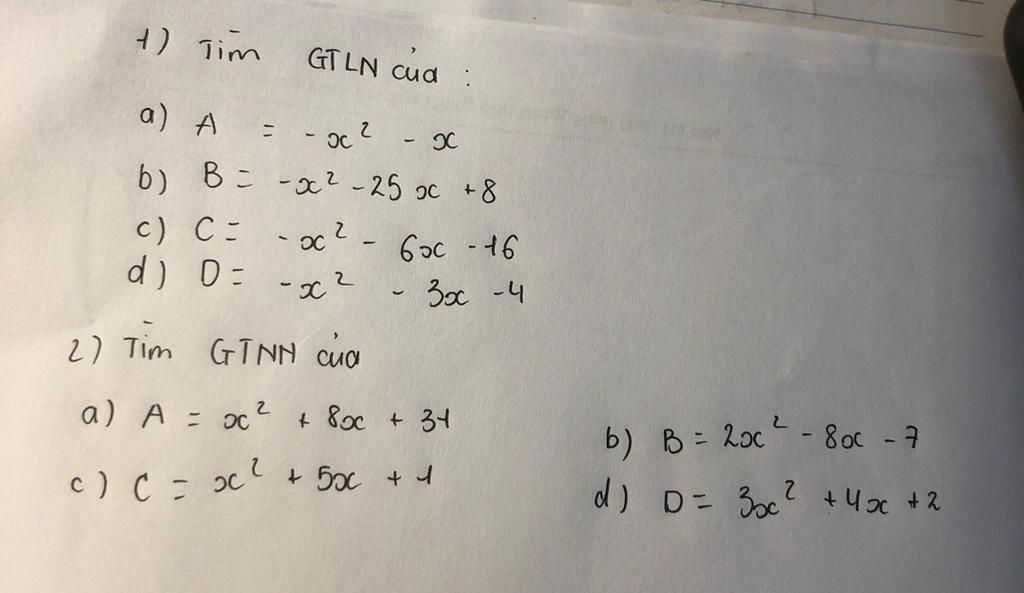 1) Tìm GTLN của :
a) A = -x² - x
b) B = -x² - 25x + 8
c) C = -x² - 6x - 16
d) D = -x² - 3x - 4
2) Tìm GTNN của
a) A = x² + 8x + 31
b) B = 2x² - 8x - 7
c) C = x² + 5x + 1
d) D = 3x² + 4x + 2